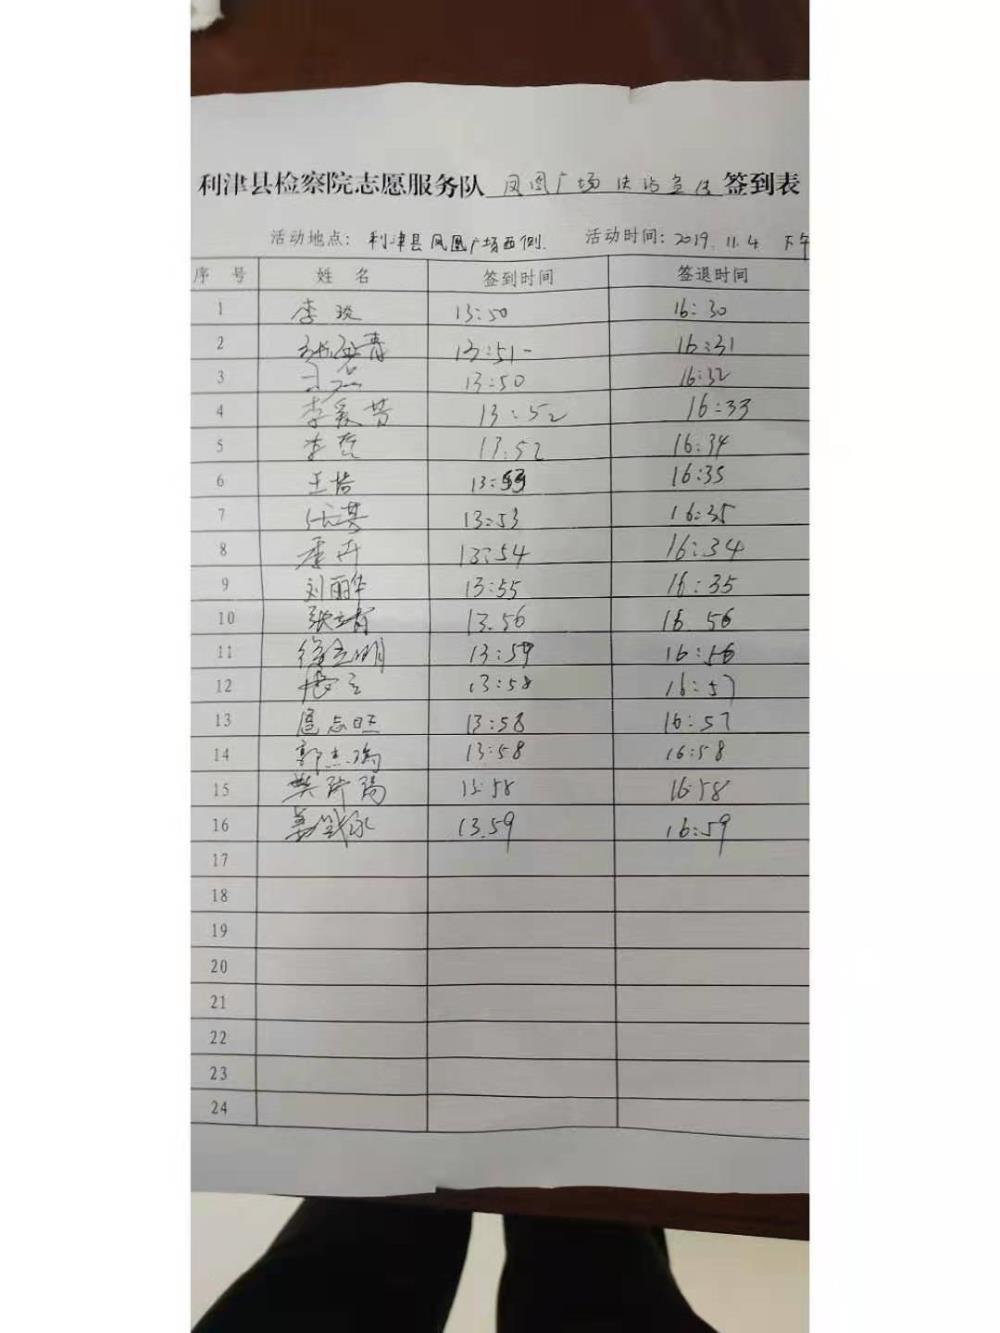 利津县检察院志愿服务队 凤凰广场法治宣传 签到表
活动地点：利津县凤凰广场西侧. 活动时间：2019.11.4 下午
序号 姓名 签到时间 签退时间
1 李 13:50 16:30
2 青 13:51 16:31
3 13:50 16:32
4 李爱芳 13:52 16:33
5 李哲 13:52 16:34
6 王浩 13:53 16:35
7 13:53 16:35
8 13:54 16:34
9 刘丽华 13:55 16:35
10 张 13.56 16.56
11 徐立明 13:59 16:56
12 13:58 16:57
13 扈志旺 13:58 16:57
14 郭杰 13:58 16:58
15 樊 13:58 16:58
16 13.59 16:59
17
18
19
20
21
22
23
24